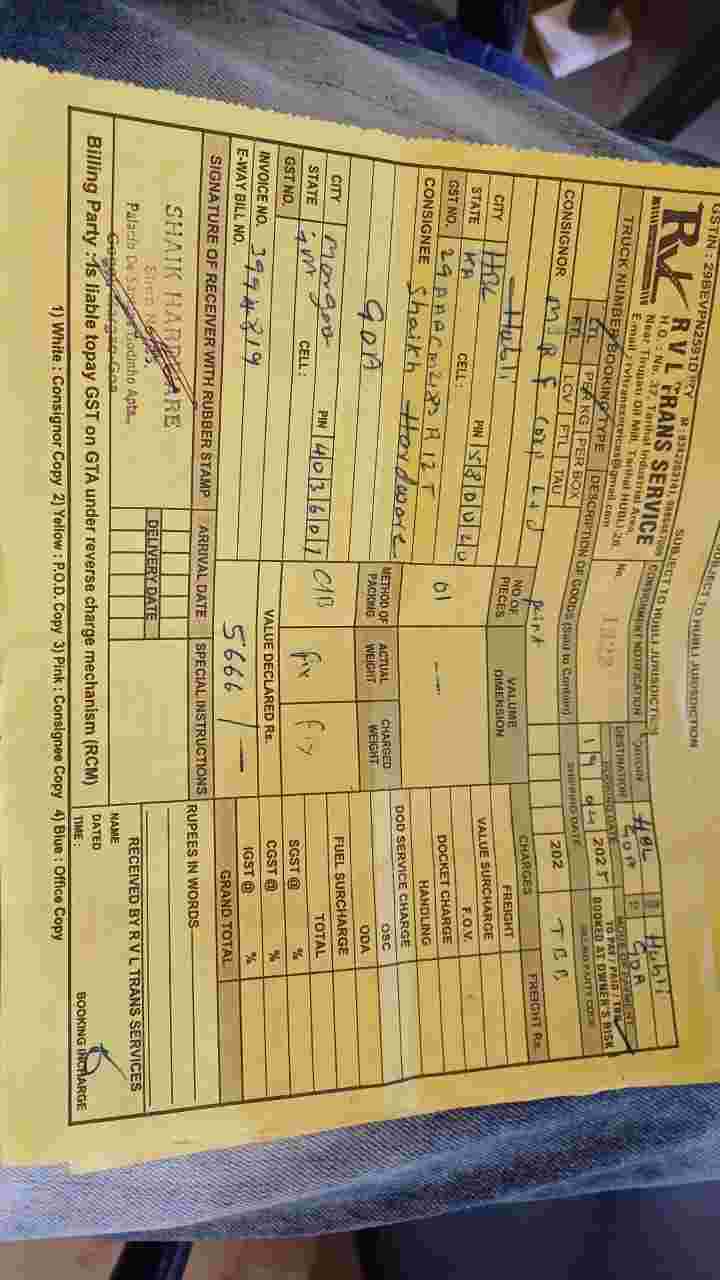 SUBJECT TO HUBLI JURISDICTION
SUBJECT TO HUBLI JURISDICTION
R V L TRANS SERVICE
H.O. : No. 37, Tarihal Industrial Area,
Near Tirupati Oil Mill, Tarihal HUBLI-26.
CONSIGNMENT NOTIFICATION
No.
DESTINATION
HBL
GOA
Hubli
GOA
TRUCK NUMBER
BOOKING TYPE
DESCRIPTION OF GOODS (Said to Contain)
FTL
PER KG
PER BOX
FTL
LCV
FTL
TAU
paint
BOOKING DATE
19 04 2025
SHIPPING DATE
202
MODE OF PAYMENT
TO PAY / PAID / TBB
BOOKED AT OWNER'S RISK
TBB
CONSIGNOR
Hubli
CITY
HBL
STATE
KA
CELL :
PIN
580020
GST NO.
CONSIGNEE
Shaikh Hardware
GOA
CITY
Margao
STATE
CELL :
PIN
403601
GST NO.
INVOICE NO.
3994819
E-WAY BILL NO.
NO OF PIECES
VALUME DIMENSION
01
METHOD OF PACKING
ACTUAL WEIGHT
CHARGED WEIGHT
fix
fix
VALUE DECLARED Rs.
5666/-
CHARGES
FREIGHT Rs.
FREIGHT
VALUE SURCHARGE
F.O.V.
DOCKET CHARGE
HANDLING
DOD SERVICE CHARGE
OSC
ODA
FUEL SURCHARGE
TOTAL
SGST @ %
CGST @ %
IGST @ %
GRAND TOTAL
SIGNATURE OF RECEIVER WITH RUBBER STAMP
ARRIVAL DATE
SPECIAL INSTRUCTIONS
RUPEES IN WORDS
SHAIK HARDWARE
DELIVERY DATE
RECEIVED BY R V L TRANS SERVICES
NAME
DATED
TIME :
BOOKING INCHARGE
Billing Party : Is liable topay GST on GTA under reverse charge mechanism (RCM)
1) White : Consignor Copy 2) Yellow : P.O.D. Copy 3) Pink : Consignee Copy 4) Blue : Office Copy